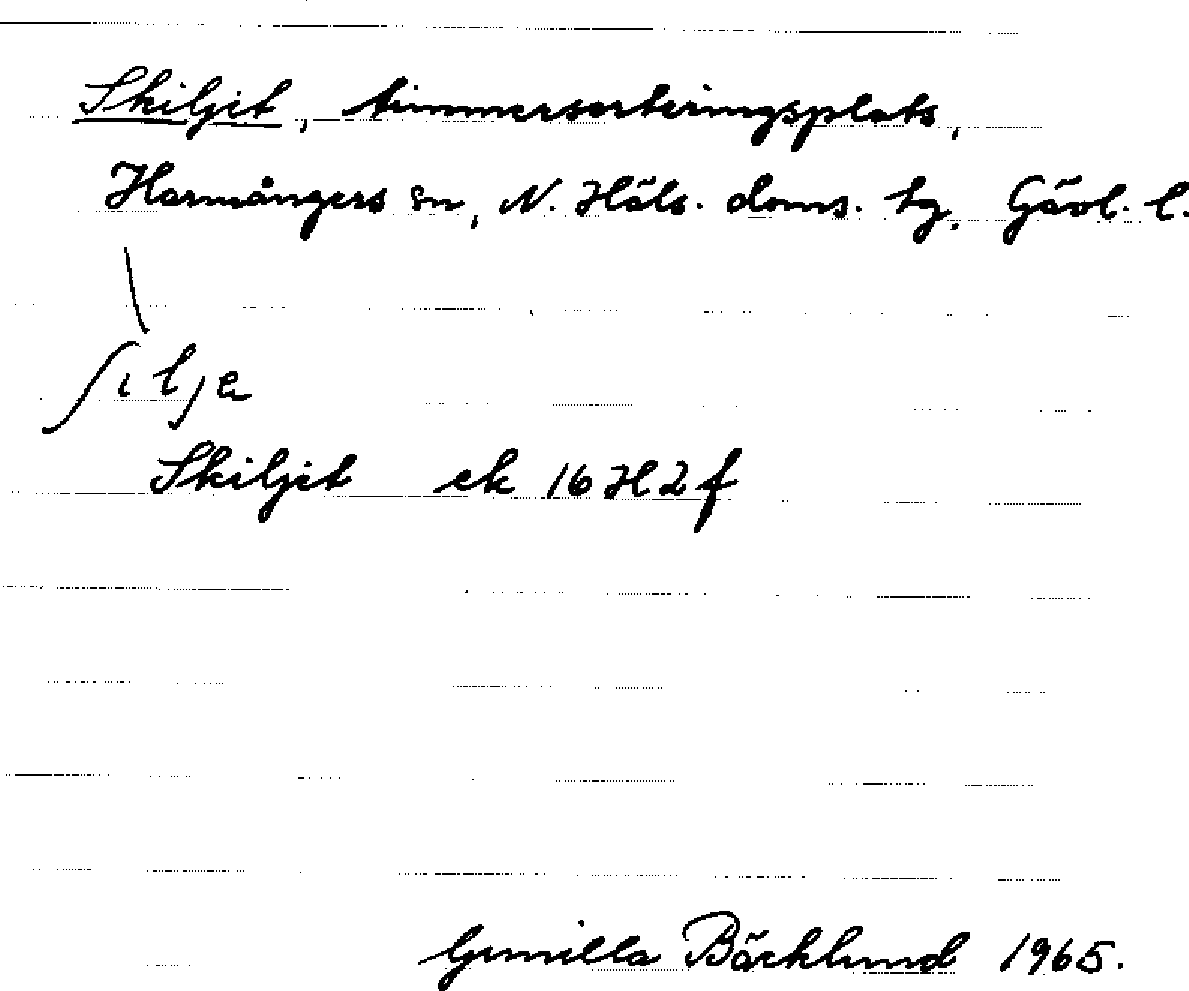 Skiljet, timmersorteringsplats,
Harmångers sn, N. Häls. doms. hg, Gävl. l.
\
ʃilje
Skiljet ek 16H2f
Gunilla Bäcklund 1965.